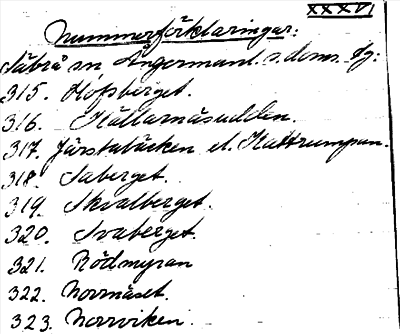 XXXVI
Nummerförklaringar:
Säbrå sn Ångermanl. s. doms. dg:
315. Hofsberget.
316. Källarnäsudden.
317. Järstabäcken el. Kattrumpan.
318. Saberget.
319. Skvalberget.
320. Svaberget.
321. Rödmyran
322. Norrnäset.
323. Norrviken.